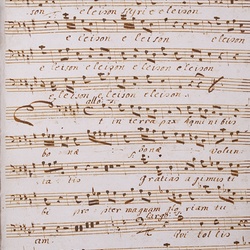 son eleison Kyrie eleison
e leison e leison eleison
e leison eleison eleison eleison
eleison eleison eleison
allo
t in terra pax homini bus
bonæ bonæ volun
ta tis gratias agimus ti
bi propter magnam gloriam tu
Largo
am. qui tol lis